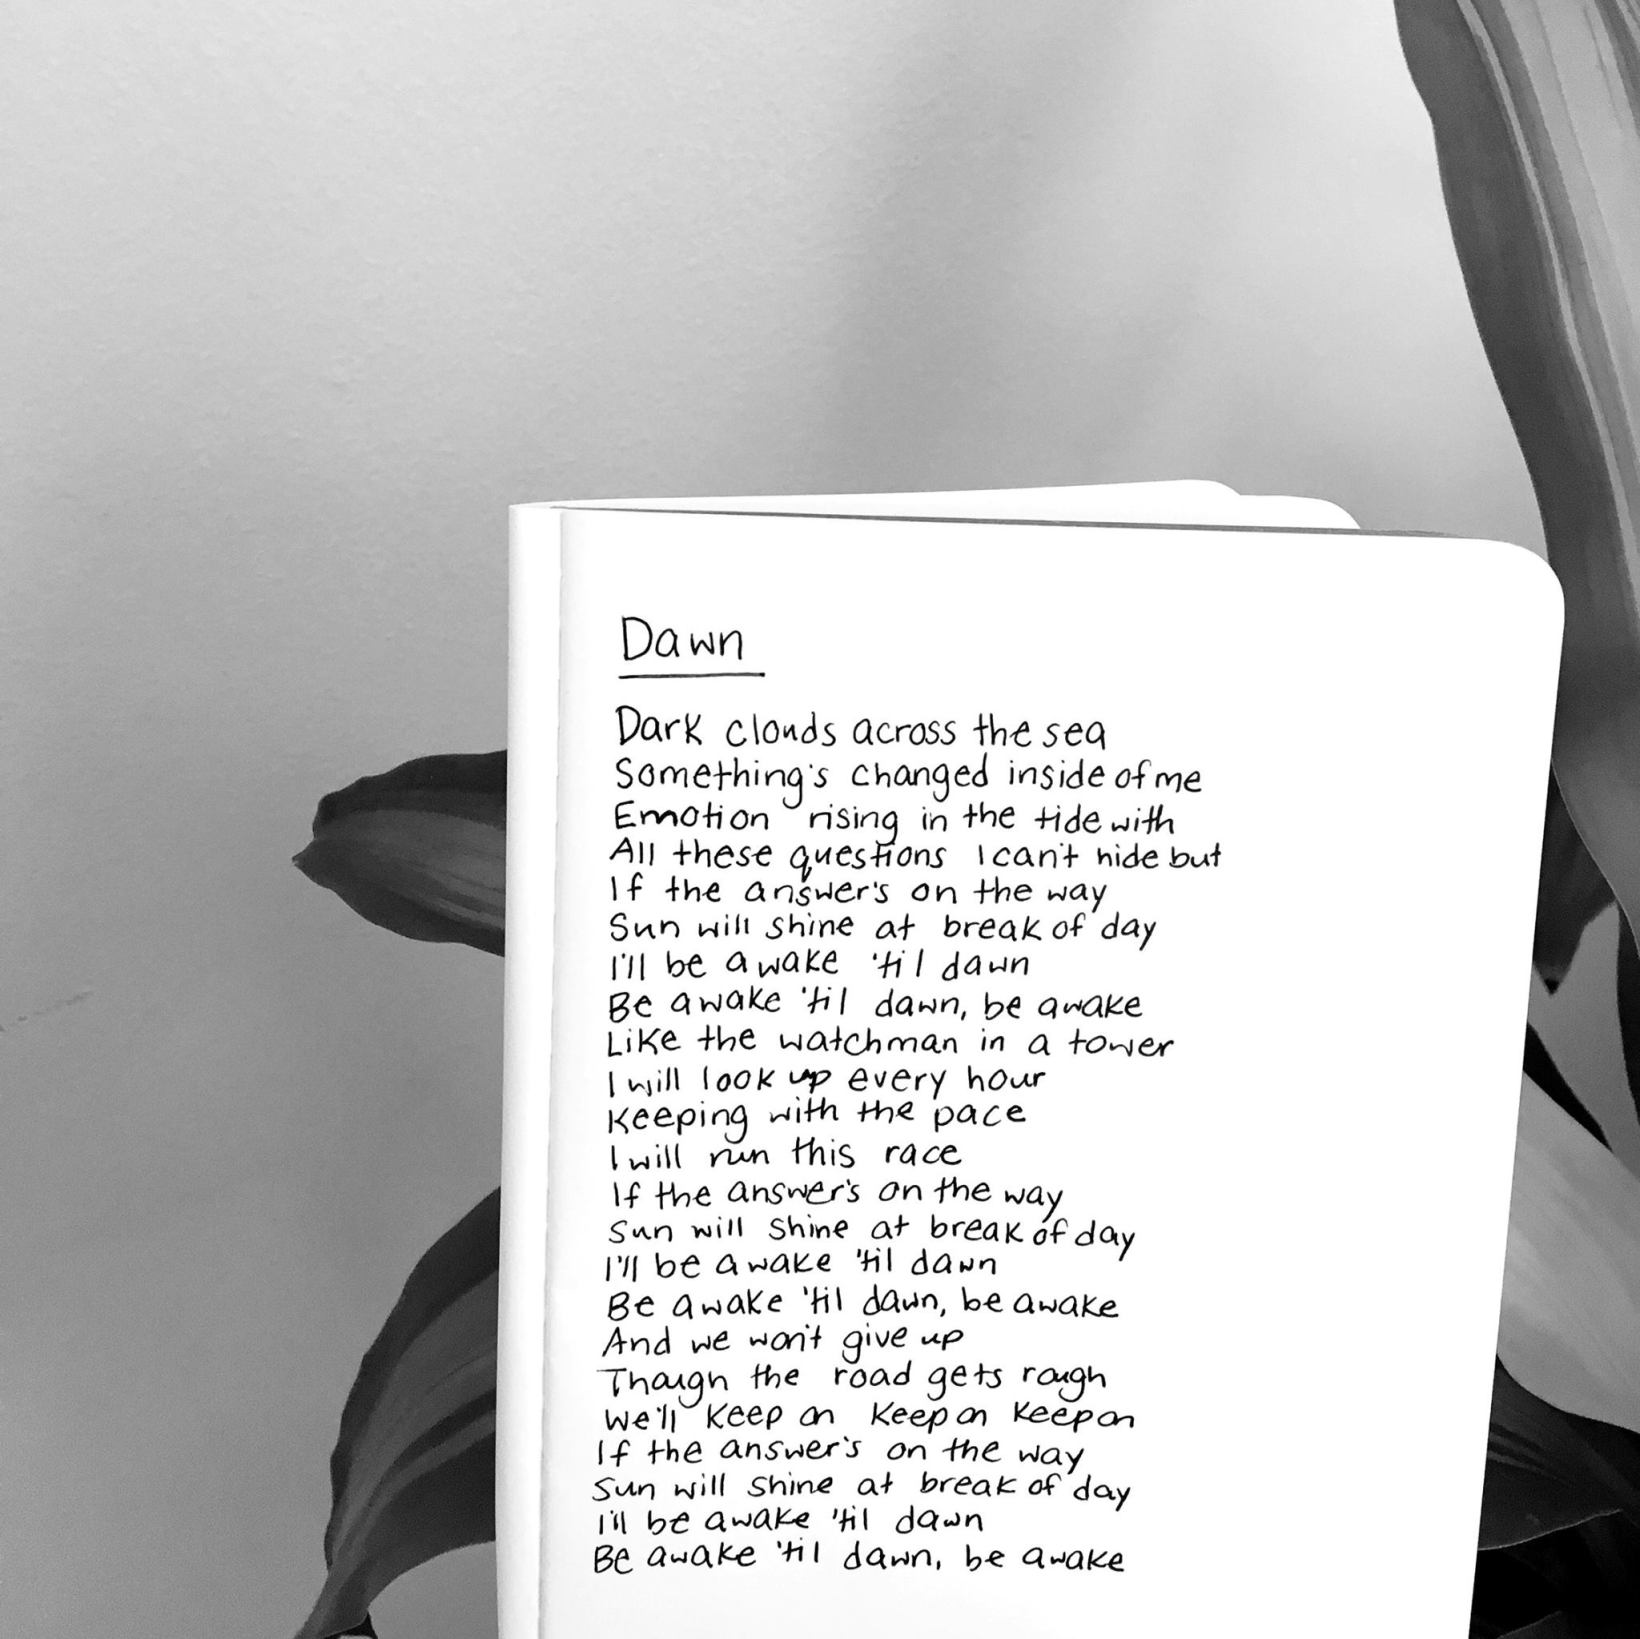 Dawn
Dark clouds across the sea
Something's changed inside of me
Emotion rising in the tide with
All these questions I can't hide but
If the answer's on the way
Sun will shine at break of day
I'll be awake 'til dawn
Be awake 'til dawn, be awake
Like the watchman in a tower
I will look up every hour
Keeping with the pace
I will run this race
If the answer's on the way
Sun will shine at break of day
I'll be awake 'til dawn
Be awake 'til dawn, be awake
And we won't give up
Though the road gets rough
We'll keep on keep on keep on
If the answer's on the way
Sun will shine at break of day
I'll be awake 'til dawn
Be awake 'til dawn, be awake